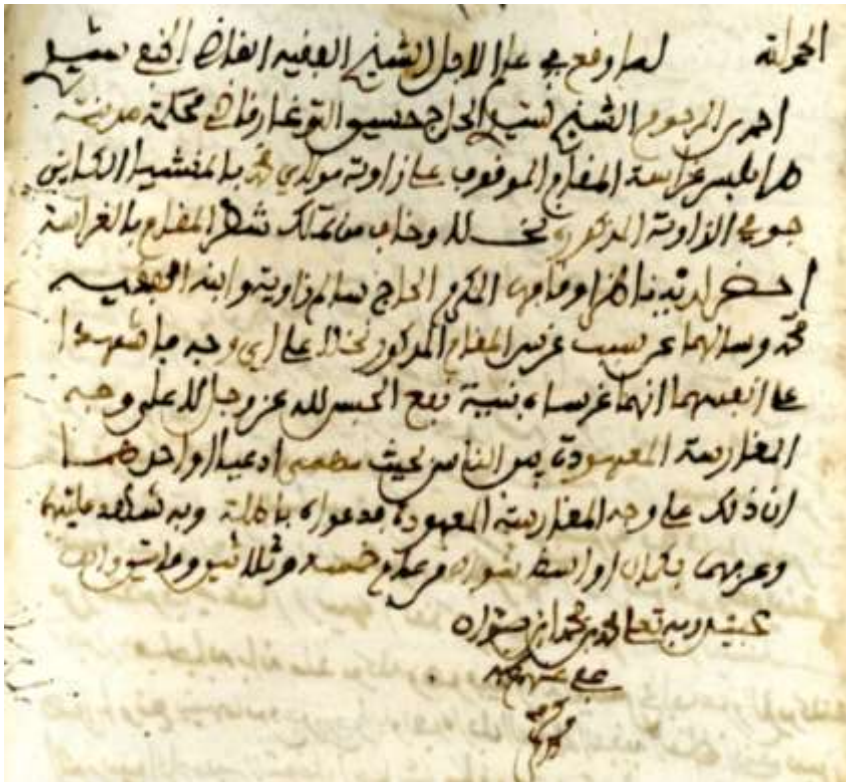 الحمد لله لما وقع في علم الاجل الشيخ الفقيه القاضي
احمد بن المرحوم الشيخ سيدي الحاج حسين التوغار قاضي محكمة مدينة
طرابلس غراسة المقام الموقوف على زاوية مولاي محمد بالمنشية الكاين
جوفي الزاوية المذكورة نخلا وخاف من تملك شطر المقام بالغراسة
احضر لديه المكرم الحاج سالم زاوية وابنه الفقيه
محمد وسالهما عن سبب غرس المقام المذكور نخلا على اي وجه فاشهدا
على انفسهما انهما غرساه بنية نفع الحبس لله عز وجل لا على وجه
المغارسة المعهودة بين الناس بحيث ادعيا او احدهما
ان ذلك على وجه المغارسة المعهودة فدعواه باطلة وبه شهد عليهما
وعرفهما بكمال اواسط شوال من عام خمسة وثلاثين ومايتين والف
عبيد ربه تعالى محمد بن